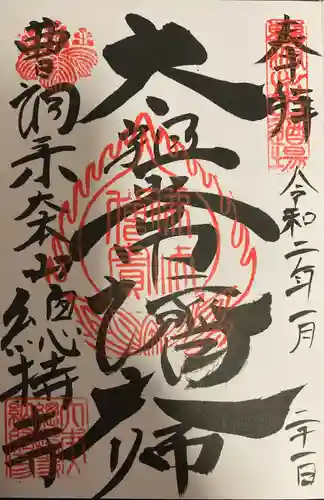 奉拝
令和二年一月二十一日
太祖常濟大師
曹洞宗大本山總持寺